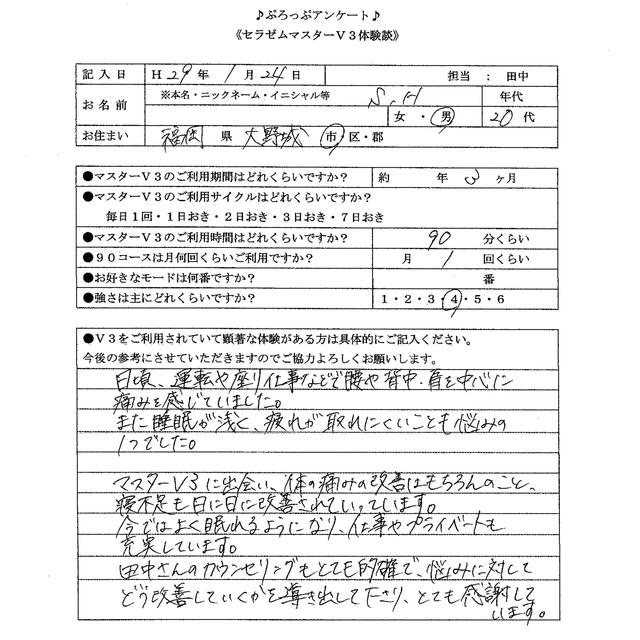 ♪ぷろっぷアンケート♪
《セラゼムマスターV3体験談》
記入日 H29年1月24日 担当 : 田中
お名前 ※本名・ニックネーム・イニシャル等 S.H 年代
女・男 20代
お住まい 福岡 県 大野城 市・区・郡
●マスターV3のご利用期間はどれくらいですか? 約 年 3ヶ月
●マスターV3のご利用サイクルはどれくらいですか?
毎日1回・1日おき・2日おき・3日おき・7日おき
●マスターV3のご利用時間はどれくらいですか? 90 分くらい
●90コースは月何回くらいご利用ですか? 月 1 回くらい
●お好きなモードは何番ですか? 番
●強さは主にどれくらいですか? 1・2・3・4・5・6
●V3をご利用されていて顕著な体験がある方は具体的にご記入ください。
今後の参考にさせていただきますのでご協力よろしくお願いします。
日頃、運転や座り仕事などで腰や背中・肩を中心に
痛みを感じていました。
また睡眠が浅く、疲れが取れにくいことも悩みの
1つでした。
マスターV3に出会い、体の痛みの改善はもちろんのこと、
寝不足も日に日に改善されていっています。
今ではよく眠れるようになり、仕事やプライベートも
充実しています。
田中さんのカウンセリングもとても的確で、悩みに対して
どう改善していくかを導き出して下さり、とても感謝して
います。